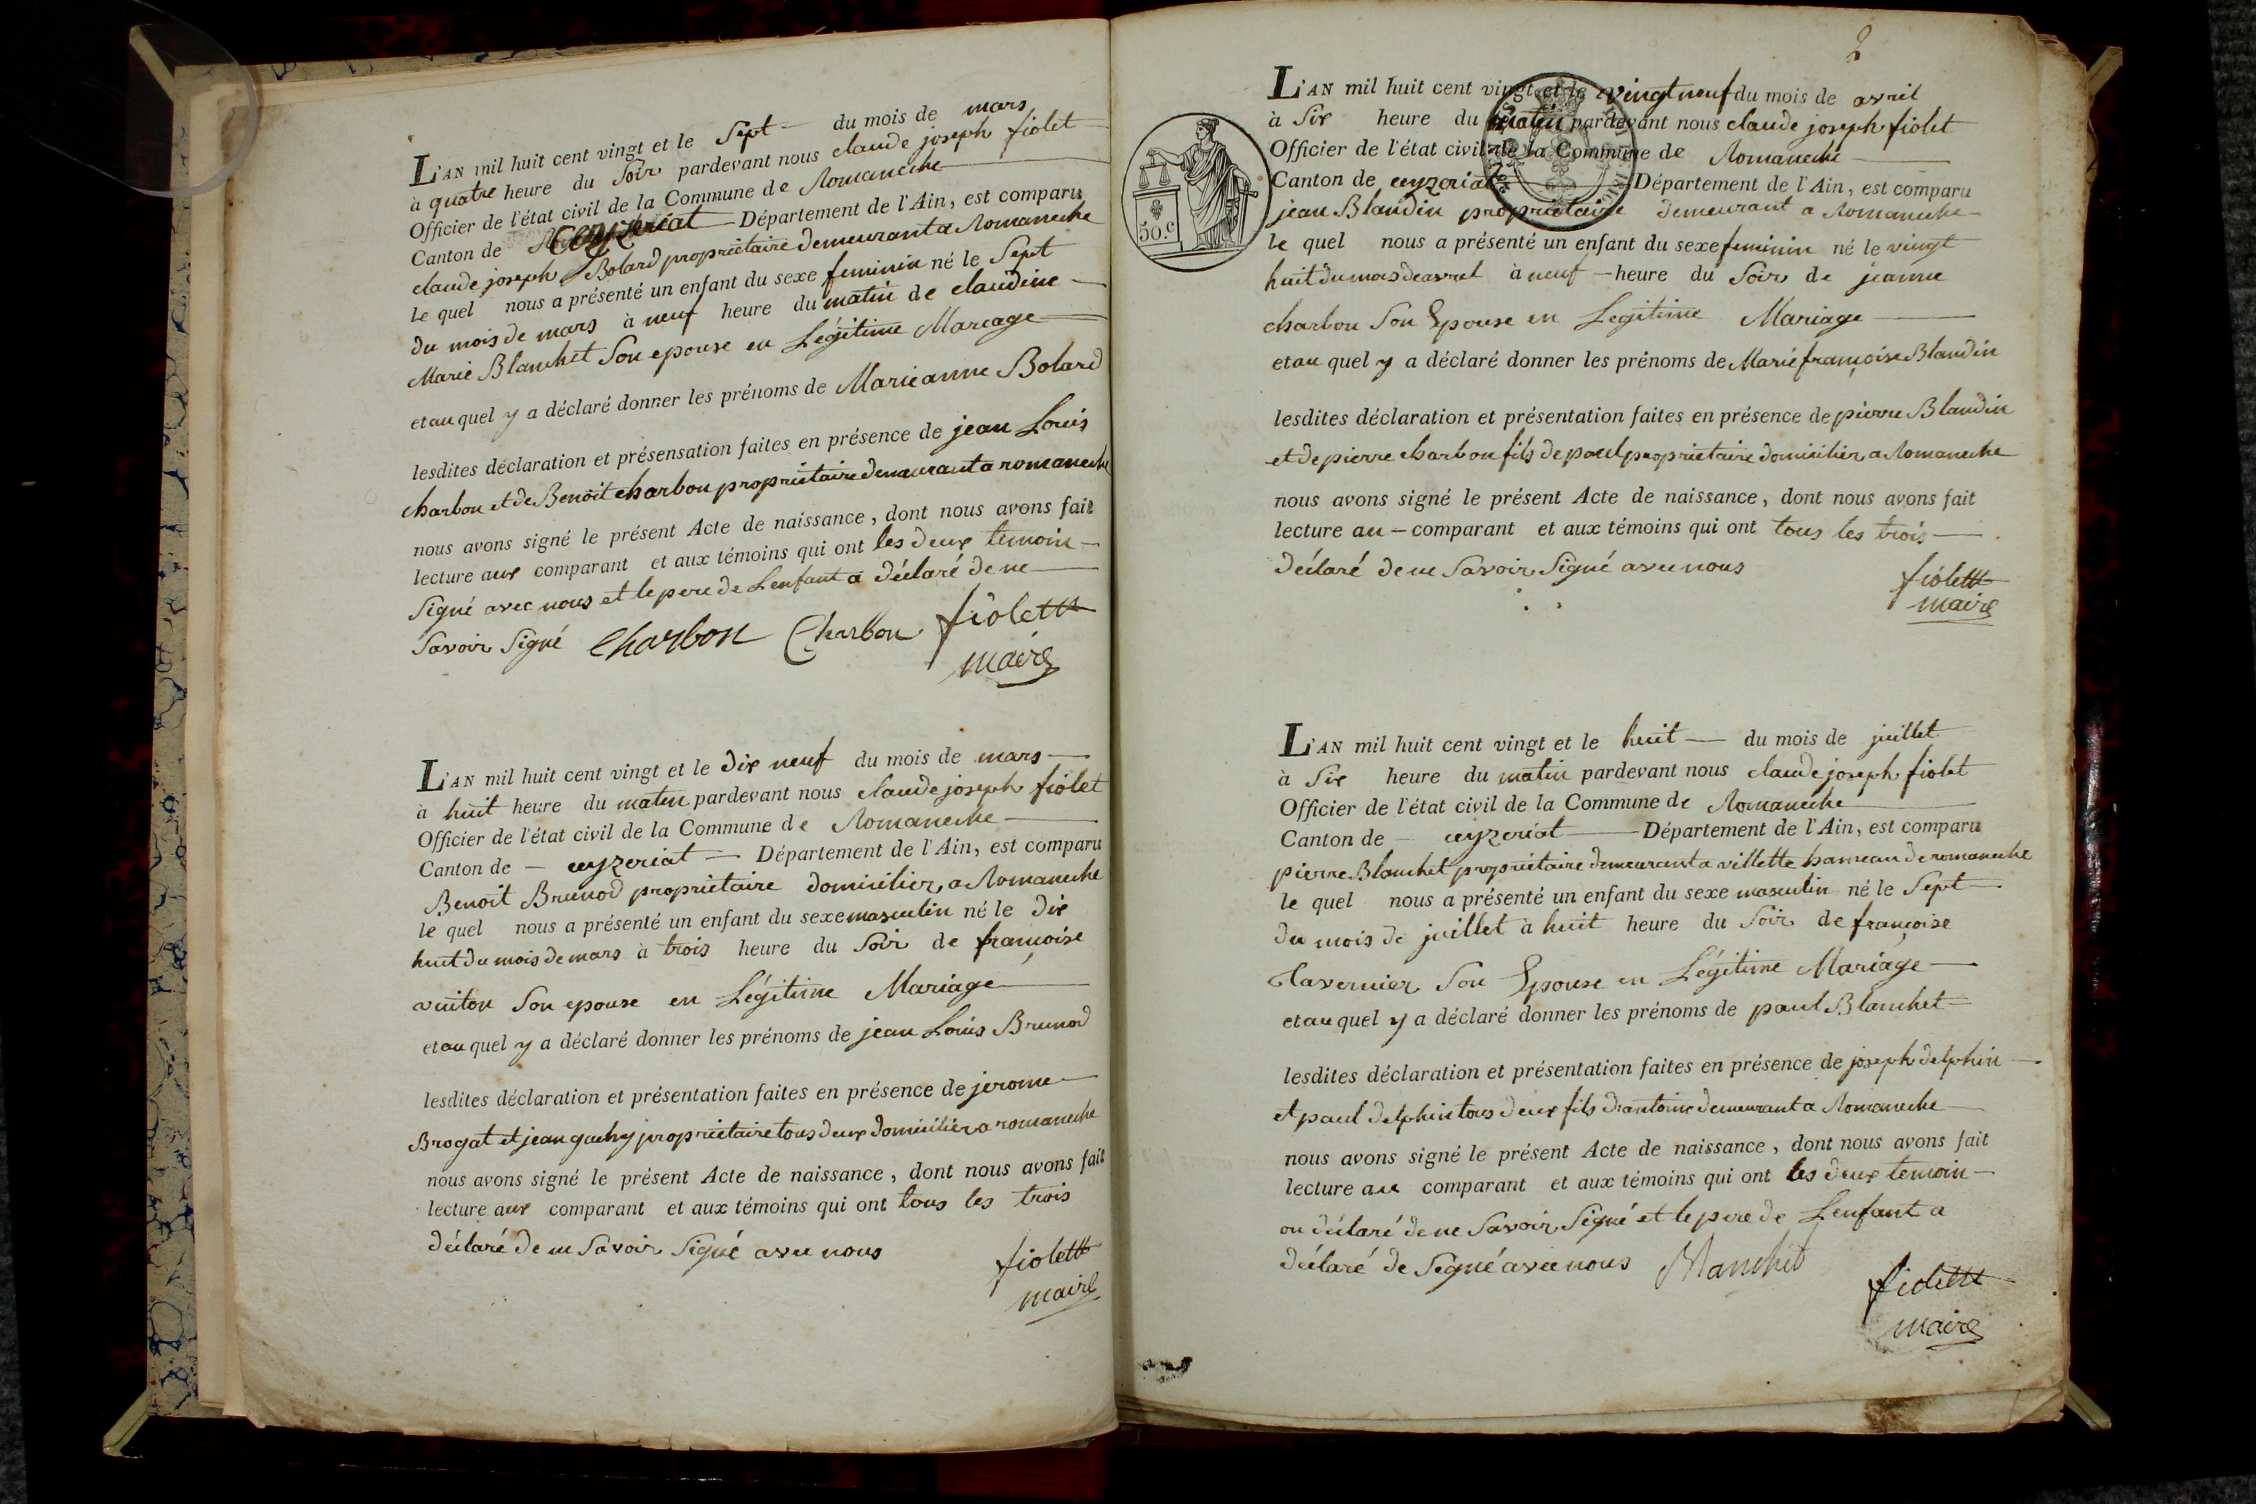 L'AN mil huit cent vingt et le Sept du mois de mars
à quatre heure du Soir pardevant nous claude joseph fiolet
Officier de l'état civil de la Commune de Romaneche
Canton de Ceyzeriat Département de l'Ain, est comparu
claude joseph Bolard proprietaire demeurant a Romaneche
le quel nous a présenté un enfant du sexe feminin né le Sept
du mois de mars à neuf heure du matin de claudine
Marie Blanchet Son epouse en Légitime Mariage
et au quel y a déclaré donner les prénoms de Marie anne Bolard
lesdites déclaration et présensation faites en présence de jean Louis
charbon et de Benoit charbon proprietaire demeurant a romaneche
nous avons signé le présent Acte de naissance, dont nous avons fait
lecture aux comparant et aux témoins qui ont les deux temoin
Signé avec nous et le pere de Lenfant a déclaré de ne
Savoir Signé Charbon Charbon fiolett
maire
L'AN mil huit cent vingt et le dix neuf du mois de mars
à huit heure du matin pardevant nous claude joseph fiolet
Officier de l'état civil de la Commune de Romaneche
Canton de ceyzeriat Département de l'Ain, est comparu
Benoit Brunod proprietaire domicilier a Romaneche
le quel nous a présenté un enfant du sexe masculin né le dix
huit du mois de mars à trois heure du Soir de françoise
vuiton Son epouse en Légitime Mariage
et au quel y a déclaré donner les prénoms de jean Louis Brunod
lesdites déclaration et présentation faites en présence de jerome
Brogat et jean guchy proprietaire tous deux domicilier a romaneche
nous avons signé le présent Acte de naissance, dont nous avons fait
lecture aux comparant et aux témoins qui ont tous les trois
déclaré de ne Savoir Signé avec nous
fiolett
maire
2
L'AN mil huit cent vingt et le vingt neuf du mois de avril
à Six heure du matin pardevant nous claude joseph fiolet
Officier de l'état civil de la Commune de Romaneche
Canton de ceyzeriat Département de l'Ain, est comparu
50.c
jean Blandin proprietaire demeurant a Romaneche
le quel nous a présenté un enfant du sexe feminin né le vingt
huit du mois de avril à neuf heure du Soir de jeanne
charbon Son Epouse en Legitime Mariage
et au quel y a déclaré donner les prénoms de Marie françoise Blandin
lesdites déclaration et présentation faites en présence de pierre Blandin
et de pierre charbon fils de paul proprietaire domicilier a Romaneche
nous avons signé le présent Acte de naissance, dont nous avons fait
lecture au comparant et aux témoins qui ont tous les trois
déclaré de ne Savoir Signé avec nous
fiolett
maire
L'AN mil huit cent vingt et le huit du mois de juillet
à Six heure du matin pardevant nous claude joseph fiolet
Officier de l'état civil de la Commune de Romaneche
Canton de ceyzeriat Département de l'Ain, est comparu
pierre Blanchet proprietaire demeurant a villette hameau de romaneche
le quel nous a présenté un enfant du sexe masculin né le Sept
du mois de juillet à huit heure du Soir de françoise
Tavernier Son Epouse en Légitime Mariage
et au quel y a déclaré donner les prénoms de paul Blanchet
lesdites déclaration et présentation faites en présence de joseph delphin
et paul delphin tous deux fils d'antoine demeurant a Romaneche
nous avons signé le présent Acte de naissance, dont nous avons fait
lecture au comparant et aux témoins qui ont les deux temoin
on déclaré de ne Savoir Signé et le pere de Lenfant a
déclaré de Signé avec nous Blanchet
fiolett
maire